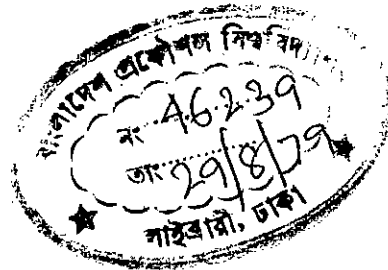 বাংলাদেশ প্রকৌশল বিশ্ববিদ্যালয়
নং 46239
তাং 29/8/79
লাইব্রারী, ঢাকা